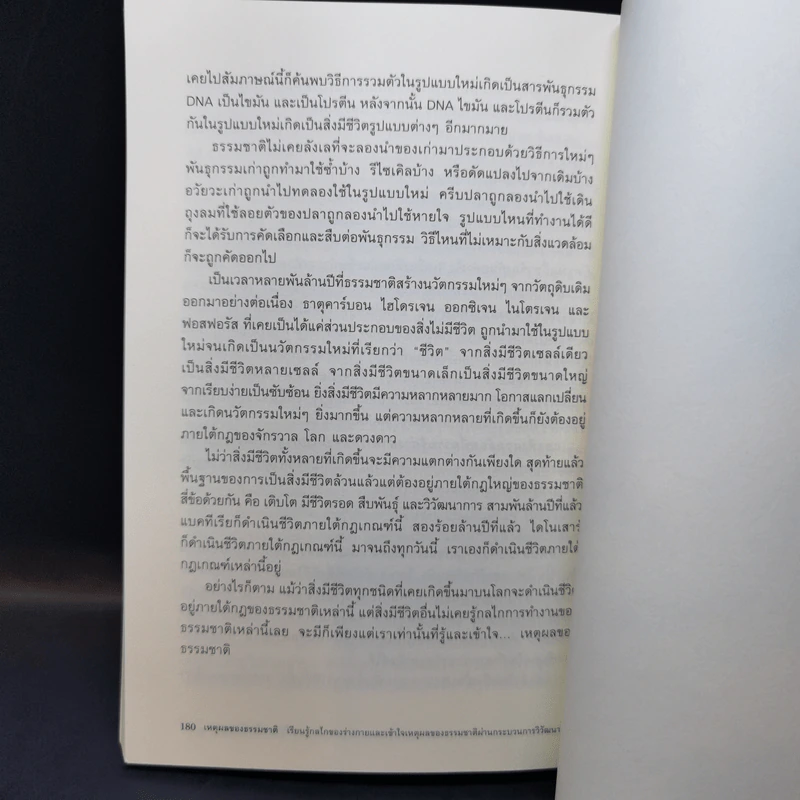 เคยไปสัมภาษณ์นี้ก็ค้นพบวิธีการรวมตัวในรูปแบบใหม่เกิดเป็นสารพันธุกรรม
DNA เป็นไขมัน และเป็นโปรตีน หลังจากนั้น DNA ไขมัน และโปรตีนก็รวมตัว
กันในรูปแบบใหม่เกิดเป็นสิ่งมีชีวิตรูปแบบต่างๆ อีกมากมาย
ธรรมชาติไม่เคยลังเลที่จะลองนำของเก่ามาประกอบด้วยวิธีการใหม่ๆ
พันธุกรรมเก่าถูกทำมาใช้ซ้ำบ้าง รีไซเคิลบ้าง หรือดัดแปลงไปจากเดิมบ้าง
อวัยวะเก่าถูกนำไปทดลองใช้ในรูปแบบใหม่ ครีบปลาถูกลองนำไปใช้เดิน
ถุงลมที่ใช้ลอยตัวของปลาถูกลองนำไปใช้หายใจ รูปแบบไหนที่ทำงานได้ดี
ก็จะได้รับการคัดเลือกและสืบต่อพันธุกรรม วิธีไหนที่ไม่เหมาะกับสิ่งแวดล้อม
ก็จะถูกคัดออกไป
เป็นเวลาหลายพันล้านปีที่ธรรมชาติสร้างนวัตกรรมใหม่ๆ จากวัตถุดิบเดิม
ออกมาอย่างต่อเนื่อง ธาตุคาร์บอน ไฮโดรเจน ออกซิเจน ไนโตรเจน และ
ฟอสฟอรัส ที่เคยเป็นได้แค่ส่วนประกอบของสิ่งไม่มีชีวิต ถูกนำมาใช้ในรูปแบบ
ใหม่จนเกิดเป็นนวัตกรรมใหม่ที่เรียกว่า “ชีวิต” จากสิ่งมีชีวิตเซลล์เดียว
เป็นสิ่งมีชีวิตหลายเซลล์ จากสิ่งมีชีวิตขนาดเล็กเป็นสิ่งมีชีวิตขนาดใหญ่
จากเรียบง่ายเป็นซับซ้อน ยิ่งสิ่งมีชีวิตมีความหลากหลายมาก โอกาสแลกเปลี่ยน
และเกิดนวัตกรรมใหม่ๆ ยิ่งมากขึ้น แต่ความหลากหลายที่เกิดขึ้นก็ยังต้องอยู่
ภายใต้กฎของจักรวาล โลก และดวงดาว
ไม่ว่าสิ่งมีชีวิตทั้งหลายที่เกิดขึ้นจะมีความแตกต่างกันเพียงใด สุดท้ายแล้ว
พื้นฐานของการเป็นสิ่งมีชีวิตล้วนแล้วแต่ต้องอยู่ภายใต้กฎใหญ่ของธรรมชาติ
สี่ข้อด้วยกัน คือ เติบโต มีชีวิตรอด สืบพันธุ์ และวิวัฒนาการ สามพันล้านปีที่แล้ว
แบคทีเรียก็ดำเนินชีวิตภายใต้กฎเกณฑ์นี้ สองร้อยล้านปีที่แล้ว ไดโนเสาร์
ก็ดำเนินชีวิตภายใต้กฎเกณฑ์นี้ มาจนถึงทุกวันนี้ เราเองก็ดำเนินชีวิตภายใต้
กฎเกณฑ์เหล่านี้อยู่
อย่างไรก็ตาม แม้ว่าสิ่งมีชีวิตทุกชนิดที่เคยเกิดขึ้นมาบนโลกจะดำเนินชีวิต
อยู่ภายใต้กฎของธรรมชาติเหล่านี้ แต่สิ่งมีชีวิตอื่นไม่เคยรู้กลไกการทำงานขอ
ธรรมชาติเหล่านี้เลย จะมีก็เพียงแต่เราเท่านั้นที่รู้และเข้าใจ... เหตุผลขอ
ธรรมชาติ
180 เหตุผลของธรรมชาติ เรียนรู้กลไกของร่างกายและเข้าใจเหตุผลของธรรมชาติผ่านกระบวนการวิวัฒนา